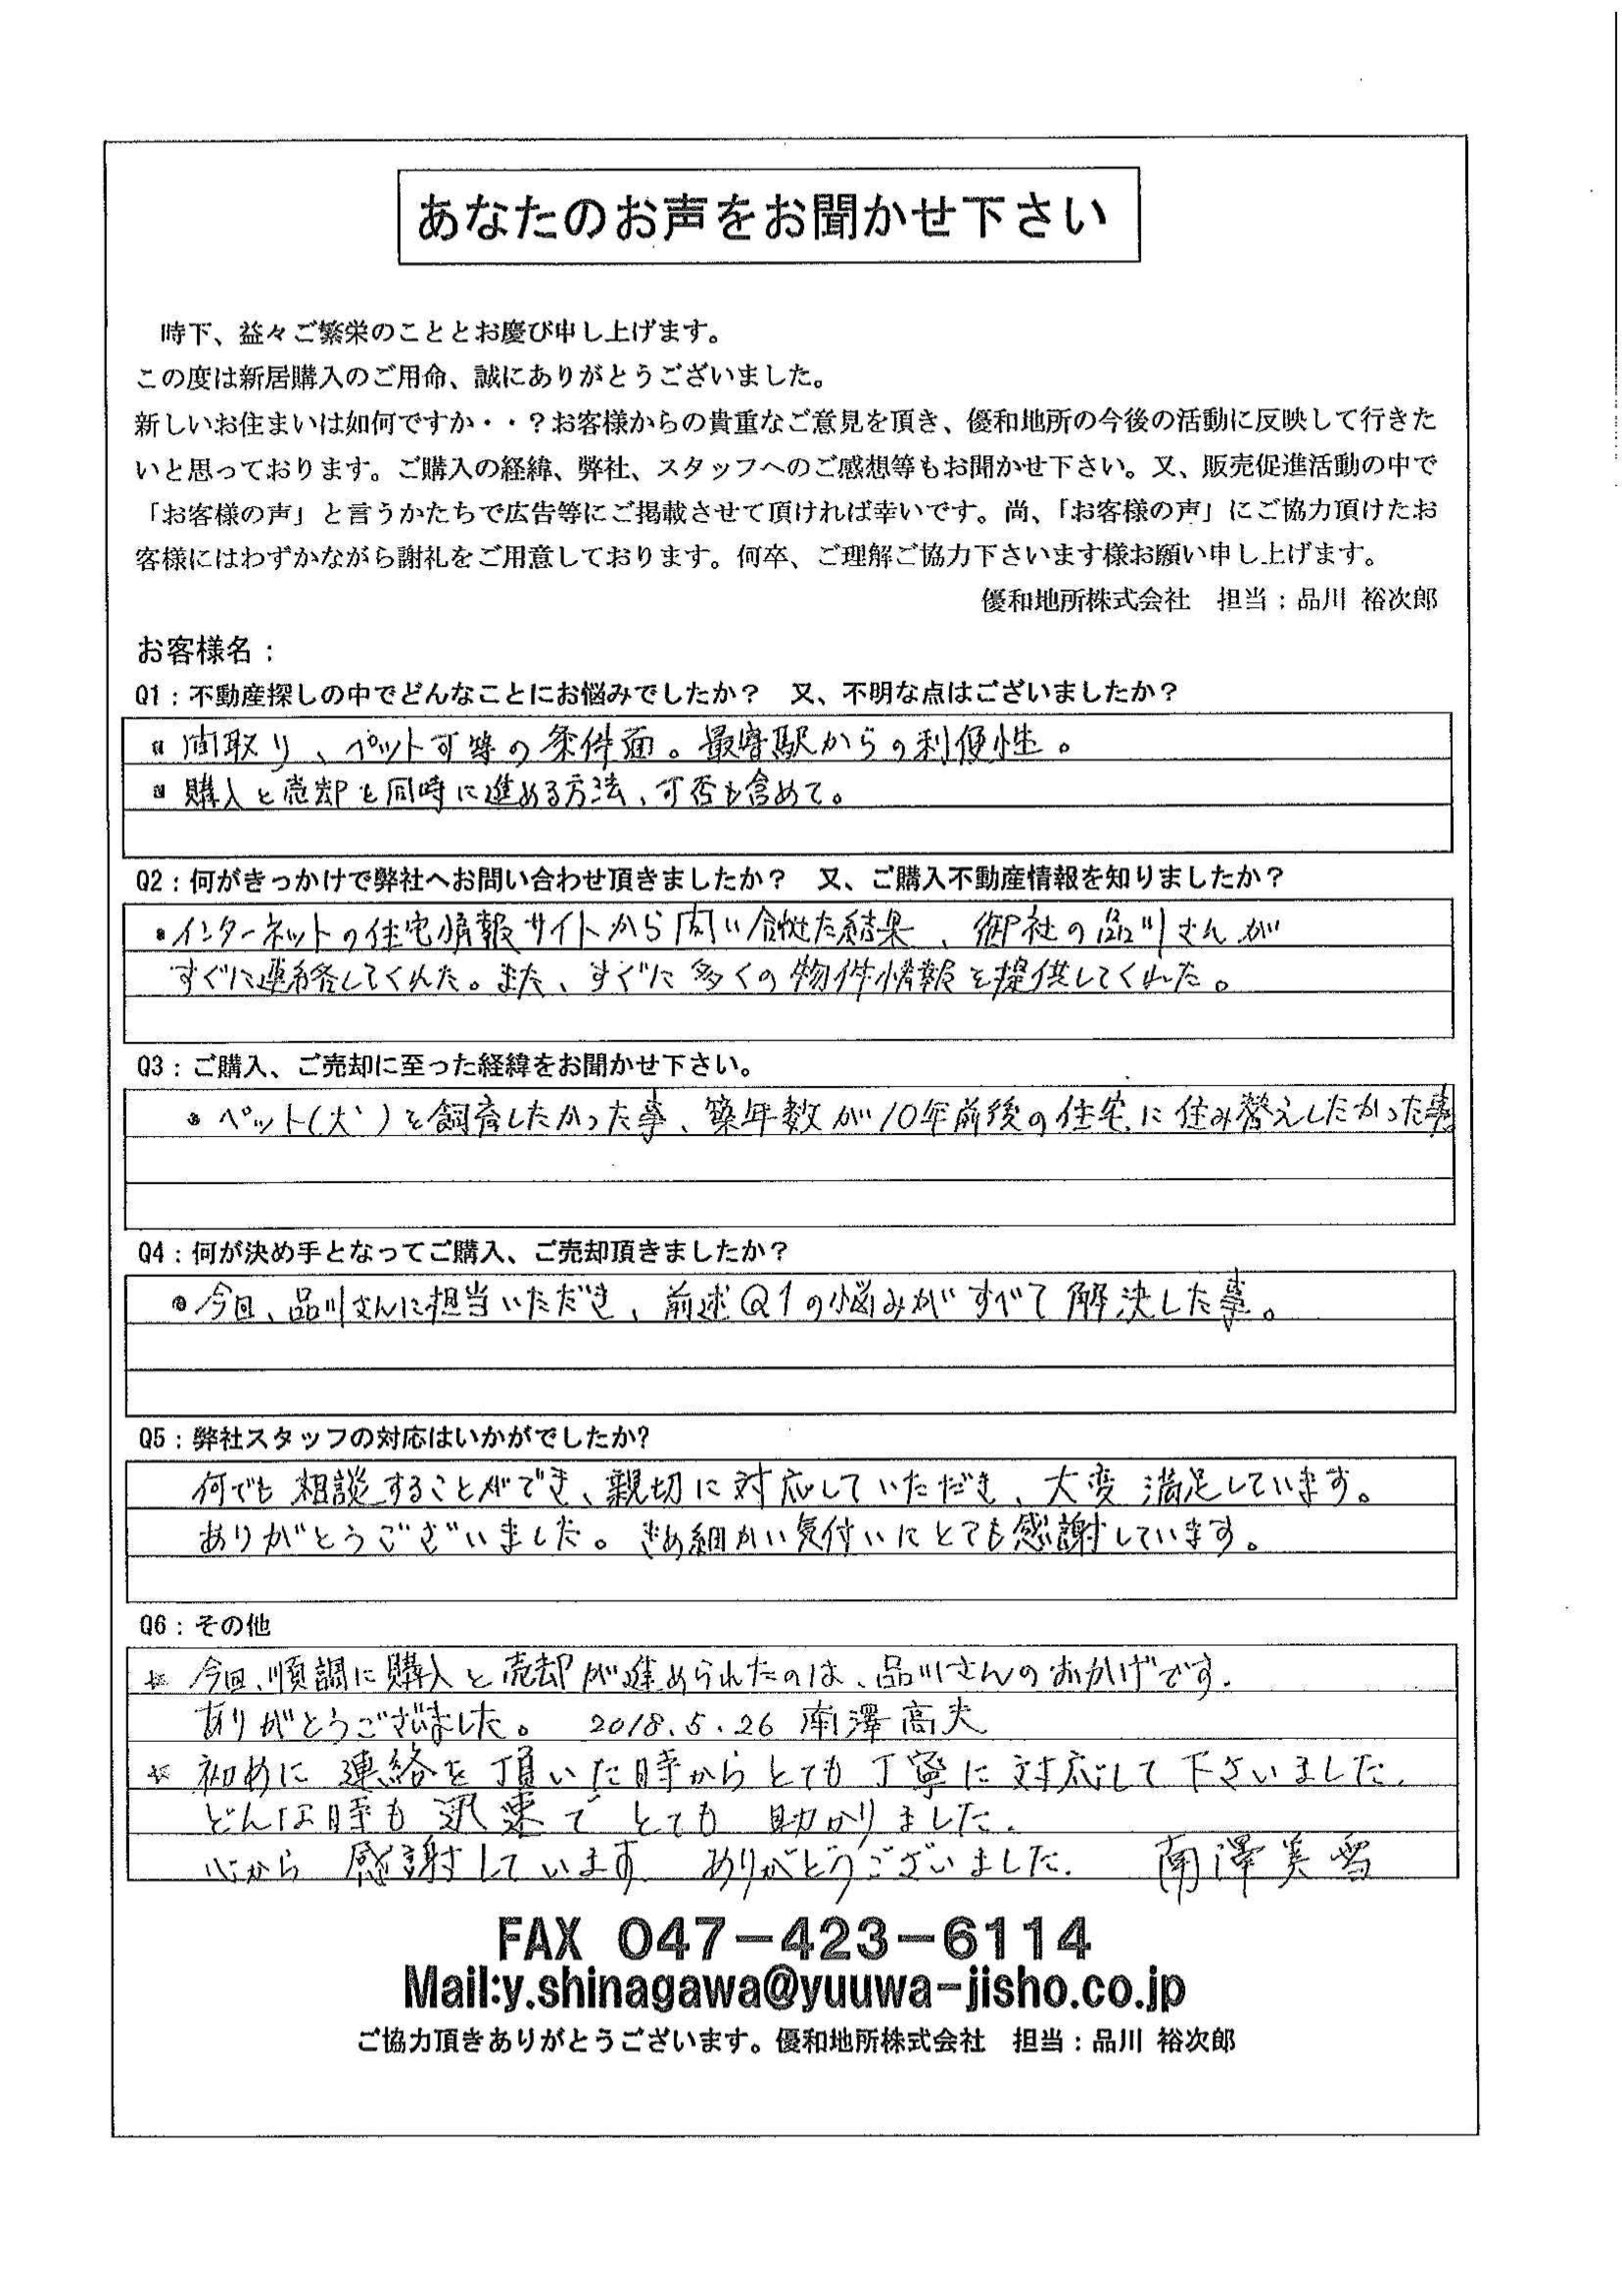 あなたのお声をお聞かせ下さい
時下、益々ご繁栄のこととお慶び申し上げます。
この度は新居購入のご用命、誠にありがとうございました。
新しいお住まいは如何ですか・・？お客様からの貴重なご意見を頂き、優和地所の今後の活動に反映して行きた
いと思っております。ご購入の経緯、弊社、スタッフへのご感想等もお聞かせ下さい。又、販売促進活動の中で
「お客様の声」と言うかたちで広告等にご掲載させて頂ければ幸いです。尚、「お客様の声」にご協力頂けたお
客様にはわずかながら謝礼をご用意しております。何卒、ご理解ご協力下さいます様お願い申し上げます。
優和地所株式会社　担当：品川 裕次郎
お客様名：
Q1：不動産探しの中でどんなことにお悩みでしたか？　又、不明な点はございましたか？
▪ 間取り、ペット可等の条件面。最寄駅からの利便性。
▪ 購入と売却を同時に進める方法、可否も含めて。
Q2：何がきっかけで弊社へお問い合わせ頂きましたか？　又、ご購入不動産情報を知りましたか？
•インターネットの住宅情報サイトから問い合せた結果、御社の品川さんが
すぐに連絡してくれた。また、すぐに多くの物件情報を提供してくれた。
Q3：ご購入、ご売却に至った経緯をお聞かせ下さい。
• ペット(犬)を飼育したかった事、築年数が10年前後の住宅に住み替えしたかった事。
Q4：何が決め手となってご購入、ご売却頂きましたか？
•今回、品川さんに担当いただき、前述Q1の悩みがすべて解決した事。
Q5：弊社スタッフの対応はいかがでしたか?
何でも相談することができ、親切に対応していただき、大変満足しています。
ありがとうございました。きめ細かい気付いにとても感謝しています。
Q6：その他
* 今回、順調に購入と売却が進められたのは、品川さんのおかげです。
ありがとうございました。 2018.5.26 南澤高夫
* 初めに連絡を頂いた時からとても丁寧に対応して下さいました。
どんな時も迅速でとても助かりました。
心から感謝しています ありがとうございました。 南澤美雪
FAX 047－423－6114
Mail:y.shinagawa@yuuwa-jisho.co.jp
ご協力頂きありがとうございます。優和地所株式会社　担当：品川 裕次郎